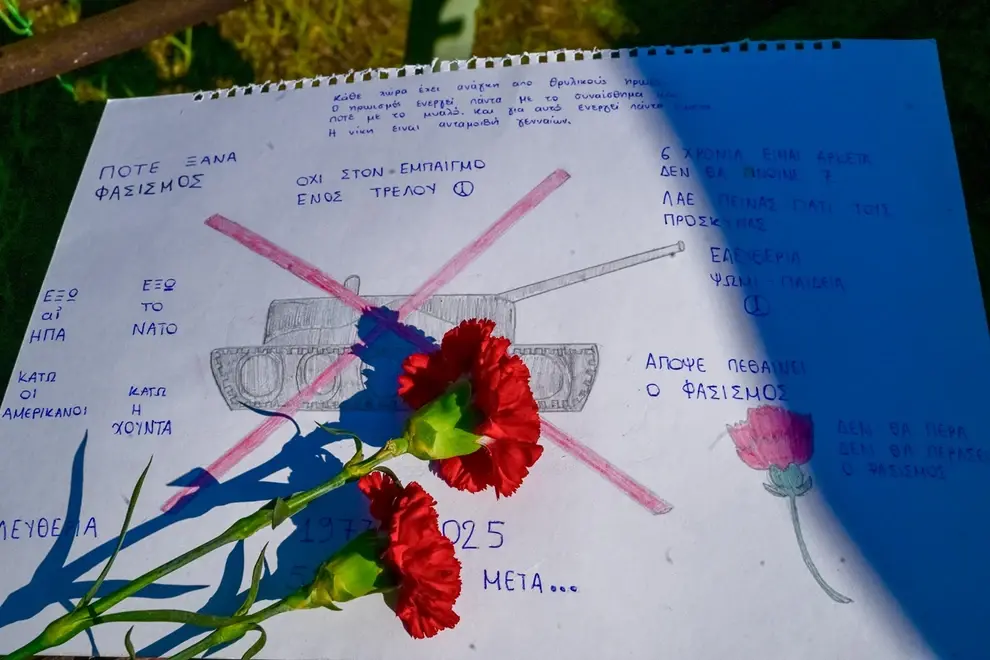 Κάθε χώρα έχει ανάγκη από θρυλικούς
Ο ηρωισμός ενεργεί πάντα με το συναίσθημα
ποτέ με το μυαλό. Και για αυτό ενεργεί πάντα
Η νίκη είναι ανταμοιβή γενναίων.
ΠΟΤΕ ΞΑΝΑ
ΦΑΣΙΣΜΟΣ
ΟΧΙ ΣΤΟΝ ΕΜΠΑΙΓΜΟ
ΕΝΟΣ ΤΡΕΛΟΥ
6 ΧΡΟΝΙΑ ΕΙΝΑΙ ΑΡΚΕΤΑ
ΔΕΝ ΘΑ ΓΙΝΟΥΝΕ 7
ΛΑΕ ΠΕΙΝΑΣ ΓΙΑΤΙ ΤΟΥΣ
ΠΡΟΣΚΥΝΑΣ
ΕΛΕΥΘΕΡΙΑ
ΨΩΜΙ ΠΑΙΔΕΙΑ
ΕΞΩ
αι
ΗΠΑ
ΕΞΩ
ΤΟ
ΝΑΤΟ
ΚΑΤΩ
ΟΙ
ΑΜΕΡΙΚΑΝΟΙ
ΚΑΤΩ
Η
ΧΟΥΝΤΑ
ΑΠΟΨΕ ΠΕΘΑΙΝΕΙ
Ο ΦΑΣΙΣΜΟΣ
ΔΕΝ ΘΑ ΠΕΡΑ
ΔΕΝ ΘΑ ΠΕΡΑΣΕΙ
Ο ΦΑΣΙΣΜΟΣ
ΛΕΥΘΕΡΙΑ
197 025
ΜΕΤΑ...